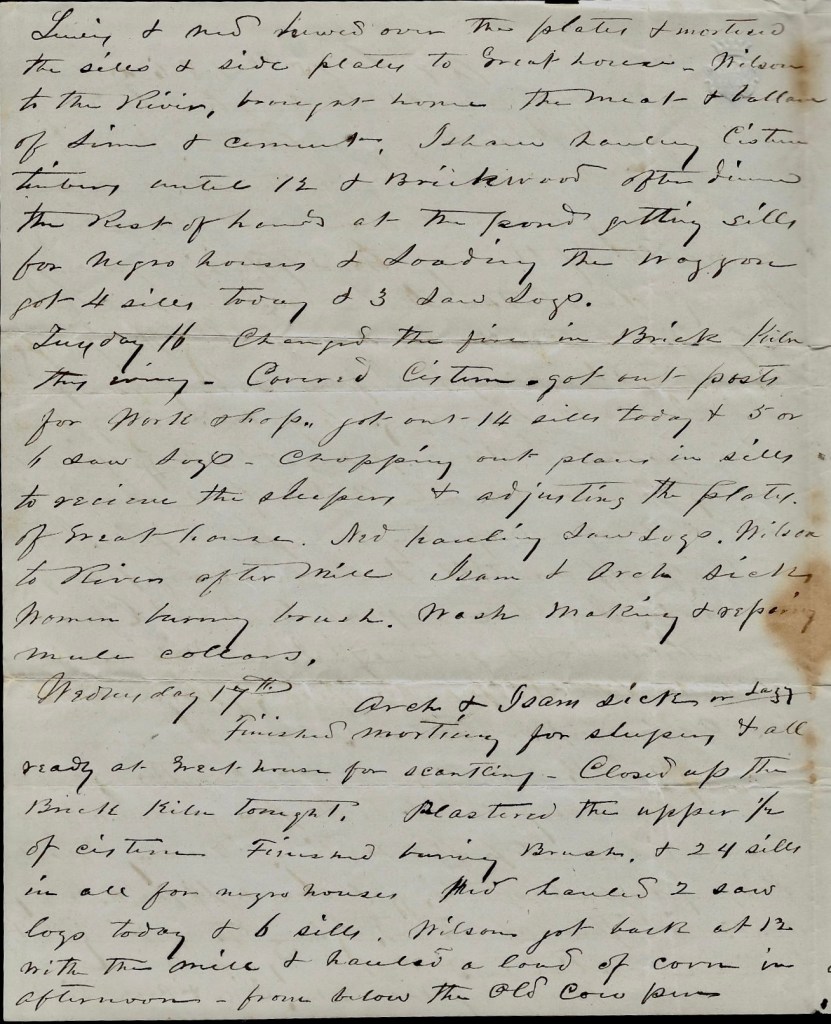 Lewis & Ned hewed over the plates & mortised
the sills & side plates to Great house - Wilson
to the River, brought home the meat & ballance
of Lime & cement. Isham hauling Cistern
timbers until 12 & Brickwood after dinner
the Rest of hands at the pond getting sills
for negro houses & Loading the waggon
got 4 sills today & 3 Saw Logs.
Tuesday 16 Changed the fire in Brick Kiln
this - Covered Cistern - got out posts
for Work shop.. got out 14 sills today & 5 or
6 Saw Logs - Chopping out places in sills
to recieve the sleepers & adjusting the plates
of Great house. Ned hauling Saw Logs. Wilson
to River after Mill Isam & Arch sick
Women burning brush. Wash Making & reparing
mule collars.
Wednesday 17th Arch & Isam sick or Lazy
Finished morticing for sleepers & all
ready at Great house for scantling - Closed up the
Brick Kiln tonight. Plastered the upper 1/2
of cistern Finished burning Brush, & 24 sills
in all for negro houses Ned hauled 2 saw
logs today & 6 sills. Wilson got back at 12
with the mill & hauled a load of corn in
afternoon - from below the Old Cow pens